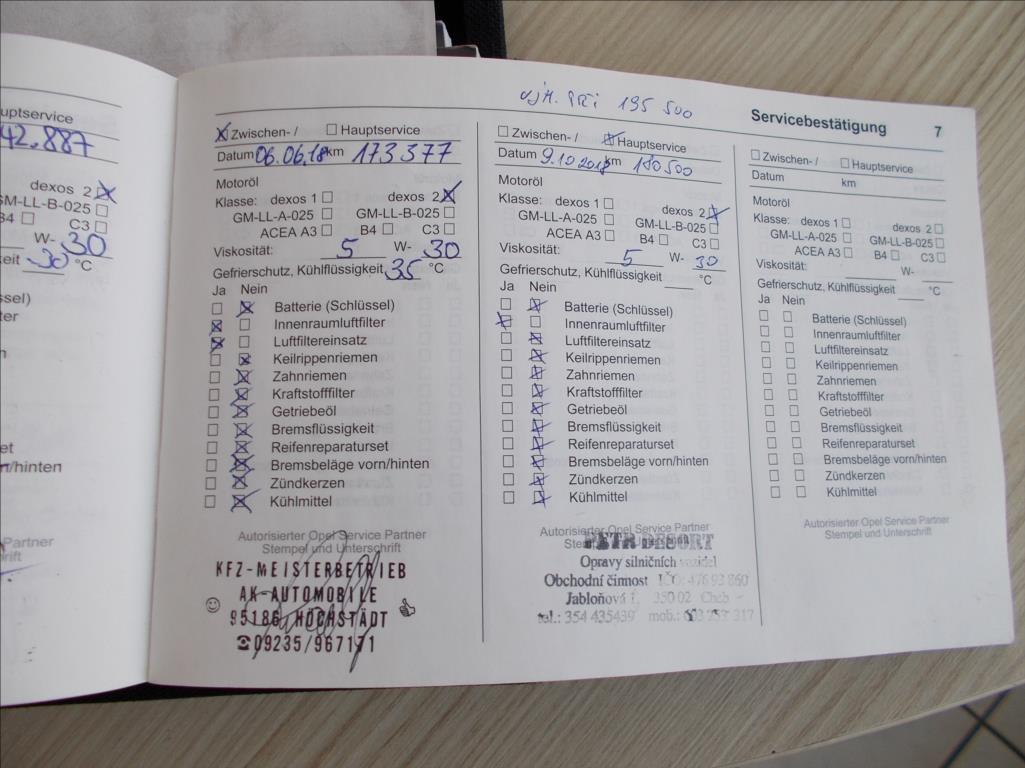 uptservice
42.887
dexos 2
GM-LL-B-025
B4 C3
W- 30
eit 30 °C
ssel)
ter
n
et
n/hinten
Partner
rift
Zwischen- / Hauptservice
Datum 06.06.18 km 173377
Motoröl
Klasse: dexos 1 dexos 2
GM-LL-A-025 GM-LL-B-025
ACEA A3 B4 C3
Viskosität: 5 W- 30
Gefrierschutz, Kühlflüssigkeit 35 °C
Ja Nein
Batterie (Schlüssel)
Innenraumluftfilter
Luftfiltereinsatz
Keilrippenriemen
Zahnriemen
Kraftstofffilter
Getriebeöl
Bremsflüssigkeit
Reifenreparaturset
Bremsbeläge vorn/hinten
Zündkerzen
Kühlmittel
Autorisierter Opel Service Partner
Stempel und Unterschrift
KFZ-MEISTERBETRIEB
AK-AUTOMOBILE
95186 HÖCHSTÄDT
☎09235/967171
při 195 500
Zwischen- / Hauptservice
Datum 9.10 2018 km 180500
Motoröl
Klasse: dexos 1 dexos 2
GM-LL-A-025 GM-LL-B-025
ACEA A3 B4 C3
Viskosität: 5 W- 30
Gefrierschutz, Kühlflüssigkeit °C
Ja Nein
Batterie (Schlüssel)
Innenraumluftfilter
Luftfiltereinsatz
Keilrippenriemen
Zahnriemen
Kraftstofffilter
Getriebeöl
Bremsflüssigkeit
Reifenreparaturset
Bremsbeläge vorn/hinten
Zündkerzen
Kühlmittel
Autorisierter Opel Service Partner
PETR DESORT
Opravy silničních vozidel
Obchodní činnost IČO: 476 93 860
Jabloňová 1, 350 02 Cheb
tel.: 354 435439 mob.: 603 253 317
Servicebestätigung 7
Zwischen- / Hauptservice
Datum km
Motoröl
Klasse: dexos 1 dexos 2
GM-LL-A-025 GM-LL-B-025
ACEA A3 B4 C3
Viskosität: W-
Gefrierschutz, Kühlflüssigkeit °C
Ja Nein
Batterie (Schlüssel)
Innenraumluftfilter
Luftfiltereinsatz
Keilrippenriemen
Zahnriemen
Kraftstofffilter
Getriebeöl
Bremsflüssigkeit
Reifenreparaturset
Bremsbeläge vorn/hinten
Zündkerzen
Kühlmittel
Autorisierter Opel Service Partner
Stempel und Unterschrift